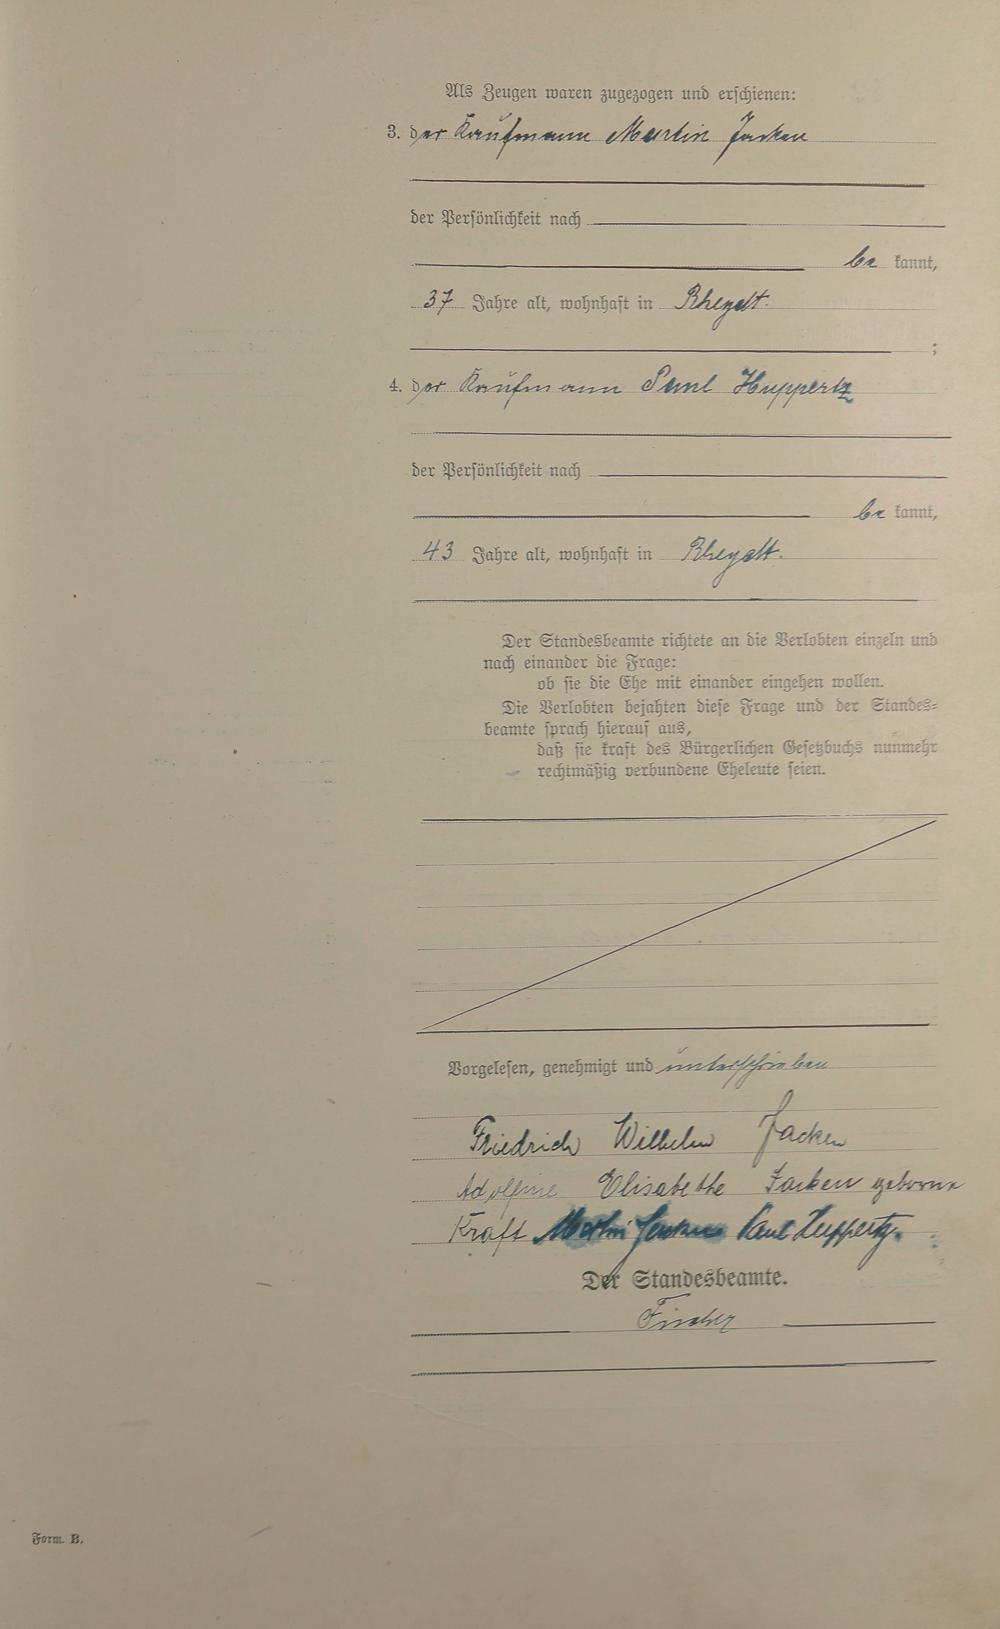 Als Zeugen waren zugezogen und erschienen:
3. der Kaufmann Martin Jacken
der Persönlichkeit nach
be kannt,
37 Jahre alt, wohnhaft in Rheydt.
;
4. der Kaufmann Paul Huppertz
der Persönlichkeit nach
be kannt,
43 Jahre alt, wohnhaft in Rheydt.
Der Standesbeamte richtete an die Verlobten einzeln und
nach einander die Frage:
ob sie die Ehe mit einander eingehen wollen.
Die Verlobten bejahten diese Frage und der Standes-
beamte sprach hierauf aus,
daß sie kraft des Bürgerlichen Gesetzbuchs nunmehr
rechtmäßig verbundene Eheleute seien.
Vorgelesen, genehmigt und unterschrieben
Friedrich Wilhelm Jacken
Adolfine Elisabethe Jacken geborene
Kraft Martin Jacken Paul Huppertz.
Der Standesbeamte.
Fischer
Form. B.